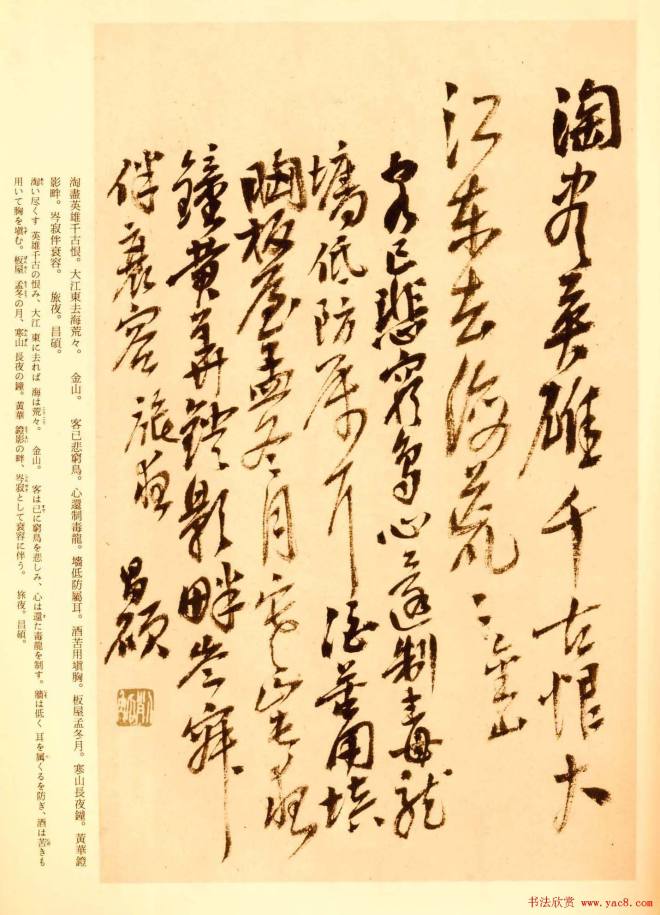 淘盡英雄千古恨大
江東去海荒々金山
客已悲窮鳥心還制毒龍
墻低防屬耳酒苦用塡
胸板屋孟冬月寒山長夜
鐘黃華鐙影畔岑寂
伴衰容旅夜昌碩
淘盡英雄千古恨。大江東去海荒々。　金山。　客已悲窮鳥。心還制毒龍。墻低防屬耳。酒苦用塡胸。板屋孟冬月。寒山長夜鐘。黃華鐙
影畔。岑寂伴衰容。　旅夜。昌碩。
淘い尽くす 英雄千古の恨み、大江 東に去れば 海は荒々。　金山。　客は已に窮鳥を悲しみ、心は還た毒龍を制す。牆は低く 耳を属くるを防ぎ、酒は苦きも
用いて胸を塡む。板屋 孟冬の月、寒山 長夜の鐘。黃華 鐙影の畔、岑寂として衰容に伴う。　旅夜。昌碩。
书法欣赏 www.yac8.com